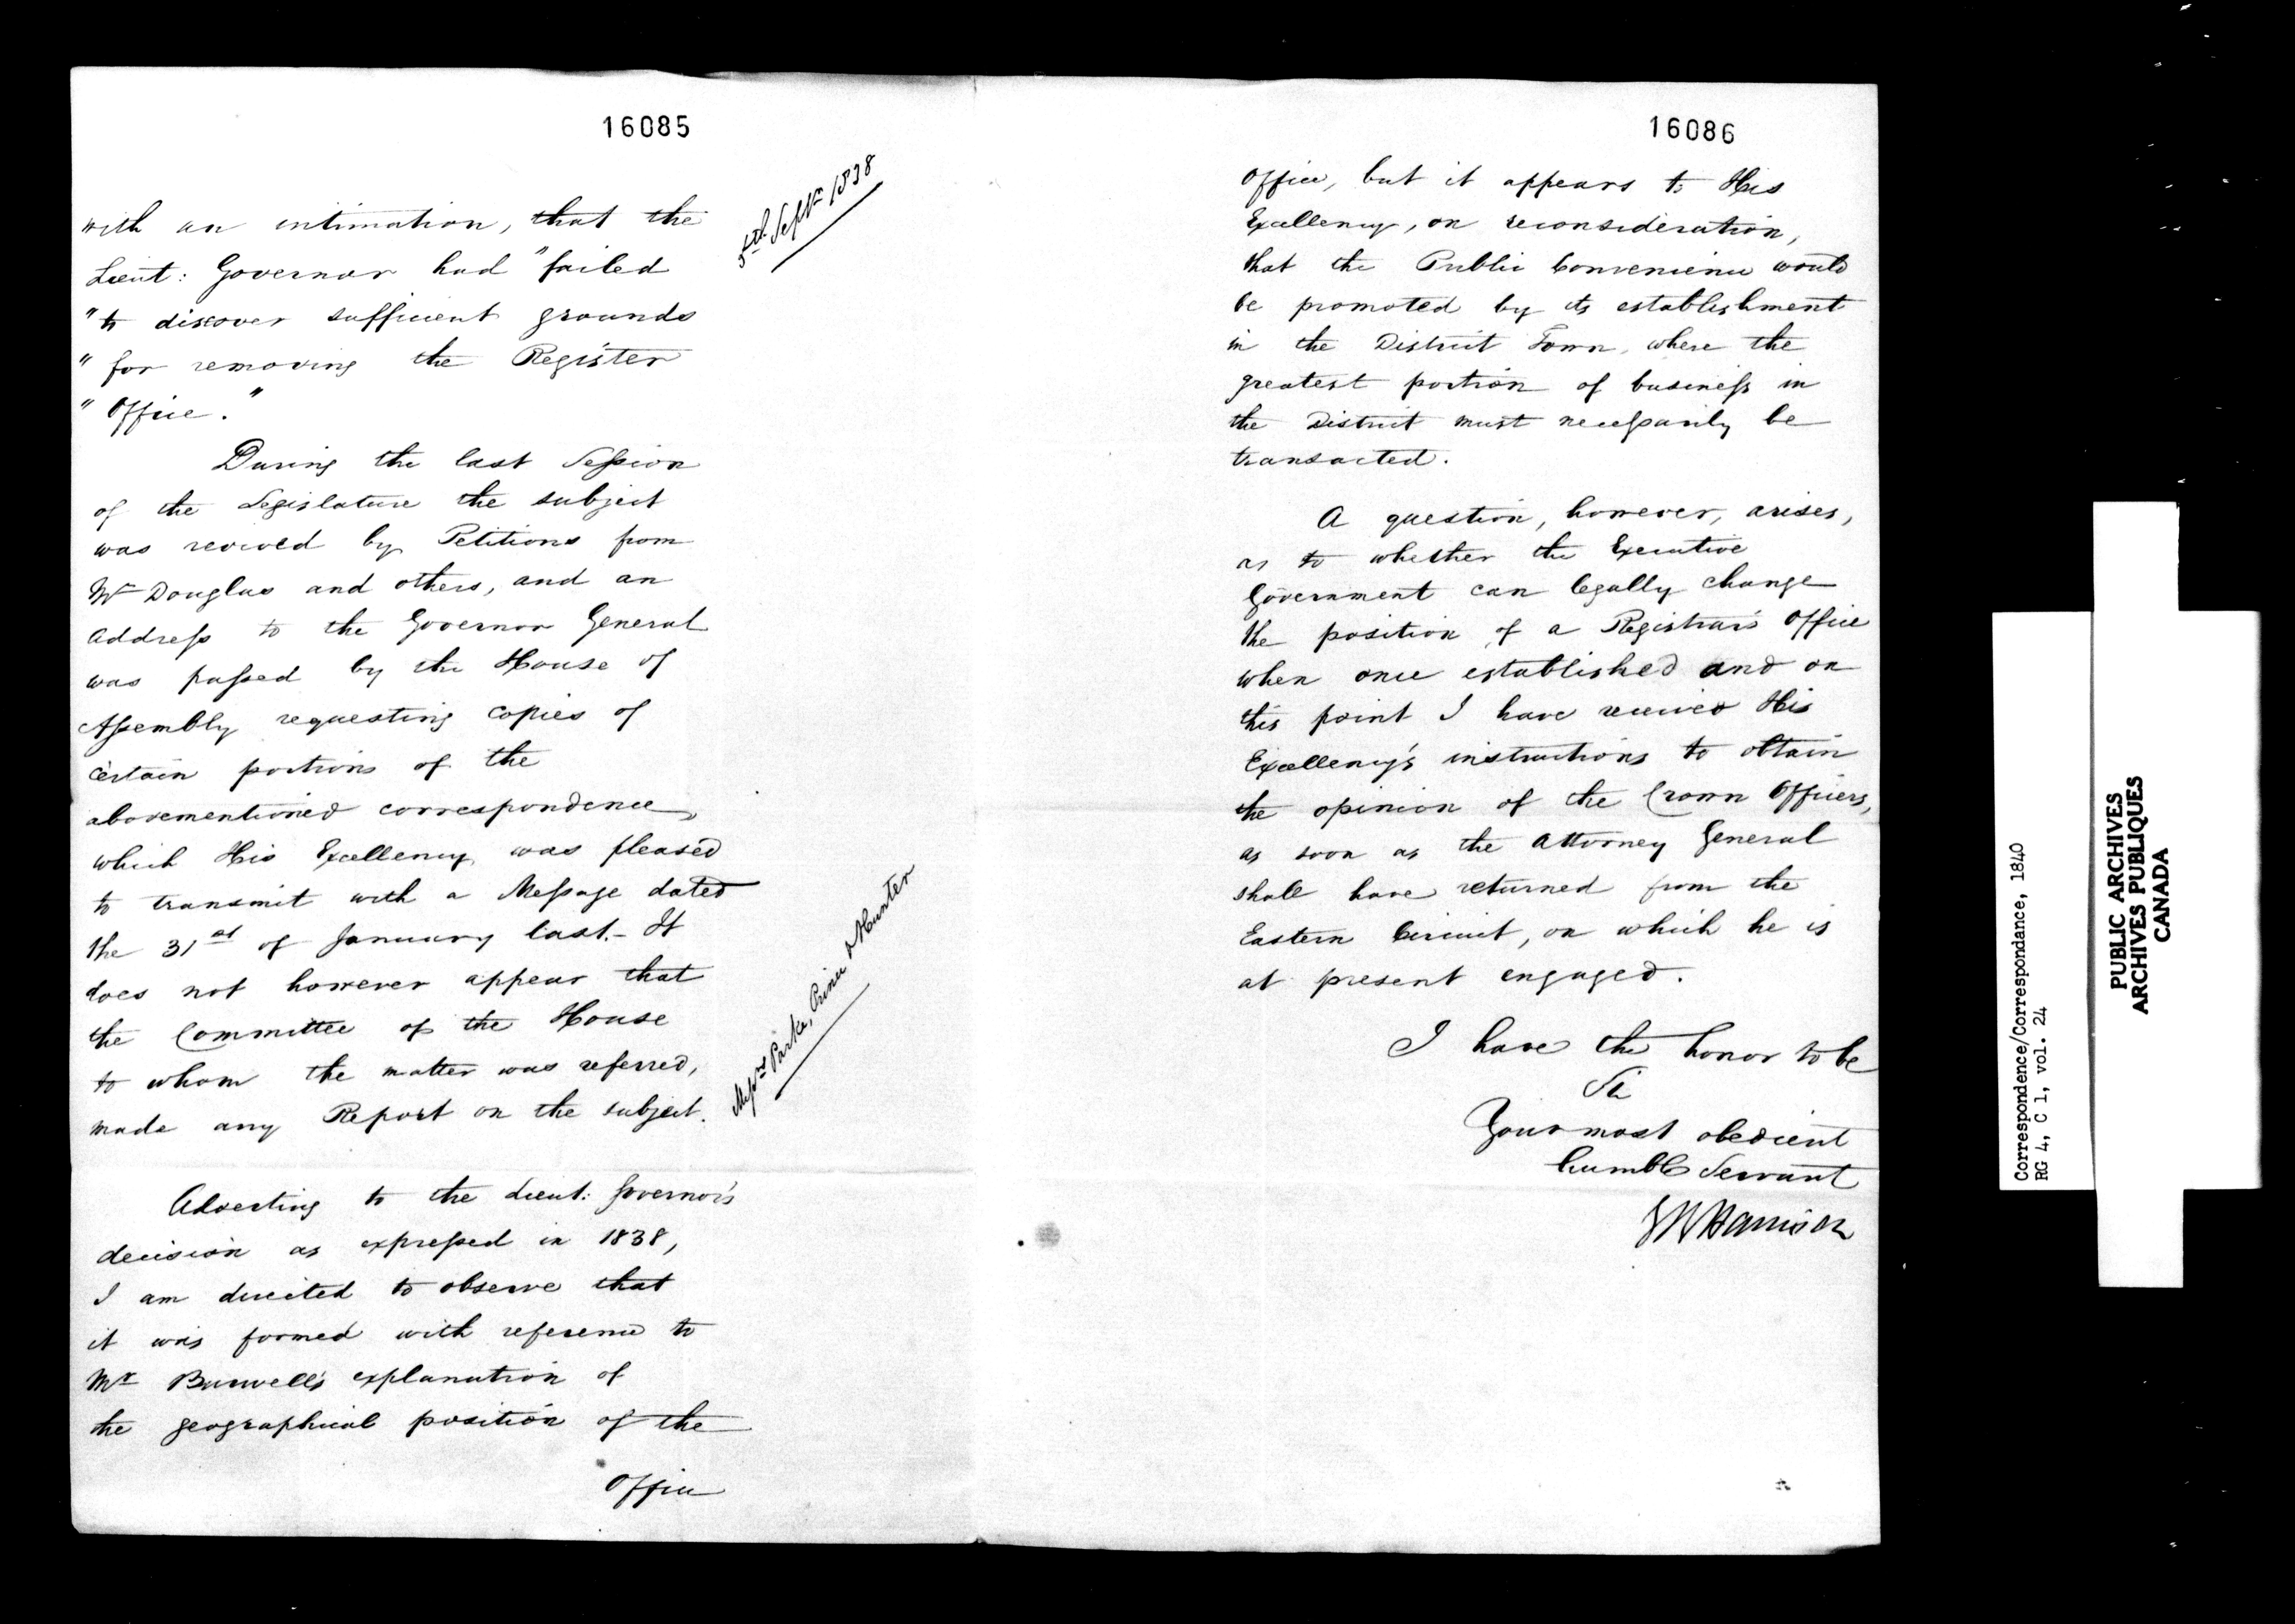 16085
5th Septr 1838
with an intimation, that the
Lieut: Governor had "failed
"to discover sufficient grounds
"for removing the Register
"Office."
During the last Session
of the Legislature the subject
was revived by Petitions from
Mr Douglas and others, and an
Address to the Governor General
was passed by the House of
Assembly requesting copies of
certain portions of the
abovementioned correspondence,
which His Excellency was pleased
to transmit with a Message dated
the 31st of January last. - It
does not however appear that
the Committee of the House
to whom the matter was referred,
made any Report on the subject.
Messrs Parke, Prince & Hunter
Adverting to the Lieut: Governor's
decision as expressed in 1838,
I am directed to observe that
it was formed with reference to
Mr Burwell's explanation of
the geographical position of the
Office
16086
Office, but it appears to His
Excellency, on reconsideration,
that the Public Convenience would
be promoted by its establishment
in the District Town, where the
greatest portion of business in
the District must necessarily be
transacted.
A question, however, arises,
as to whether the Executive
Government can legally change
the position of a Registrar's Office
when once established and on
this point I have received His
Excellency's instructions to obtain
the opinion of the Crown Officers,
as soon as the Attorney General
shall have returned from the
Eastern Circuit, on which he is
at present engaged.
I have the honor to be
Sir
Your most obedient
humble Servant
S B Harrison
Correspondence/Correspondance, 1840
RG 4, C 1, vol. 24
PUBLIC ARCHIVES
ARCHIVES PUBLIQUES
CANADA